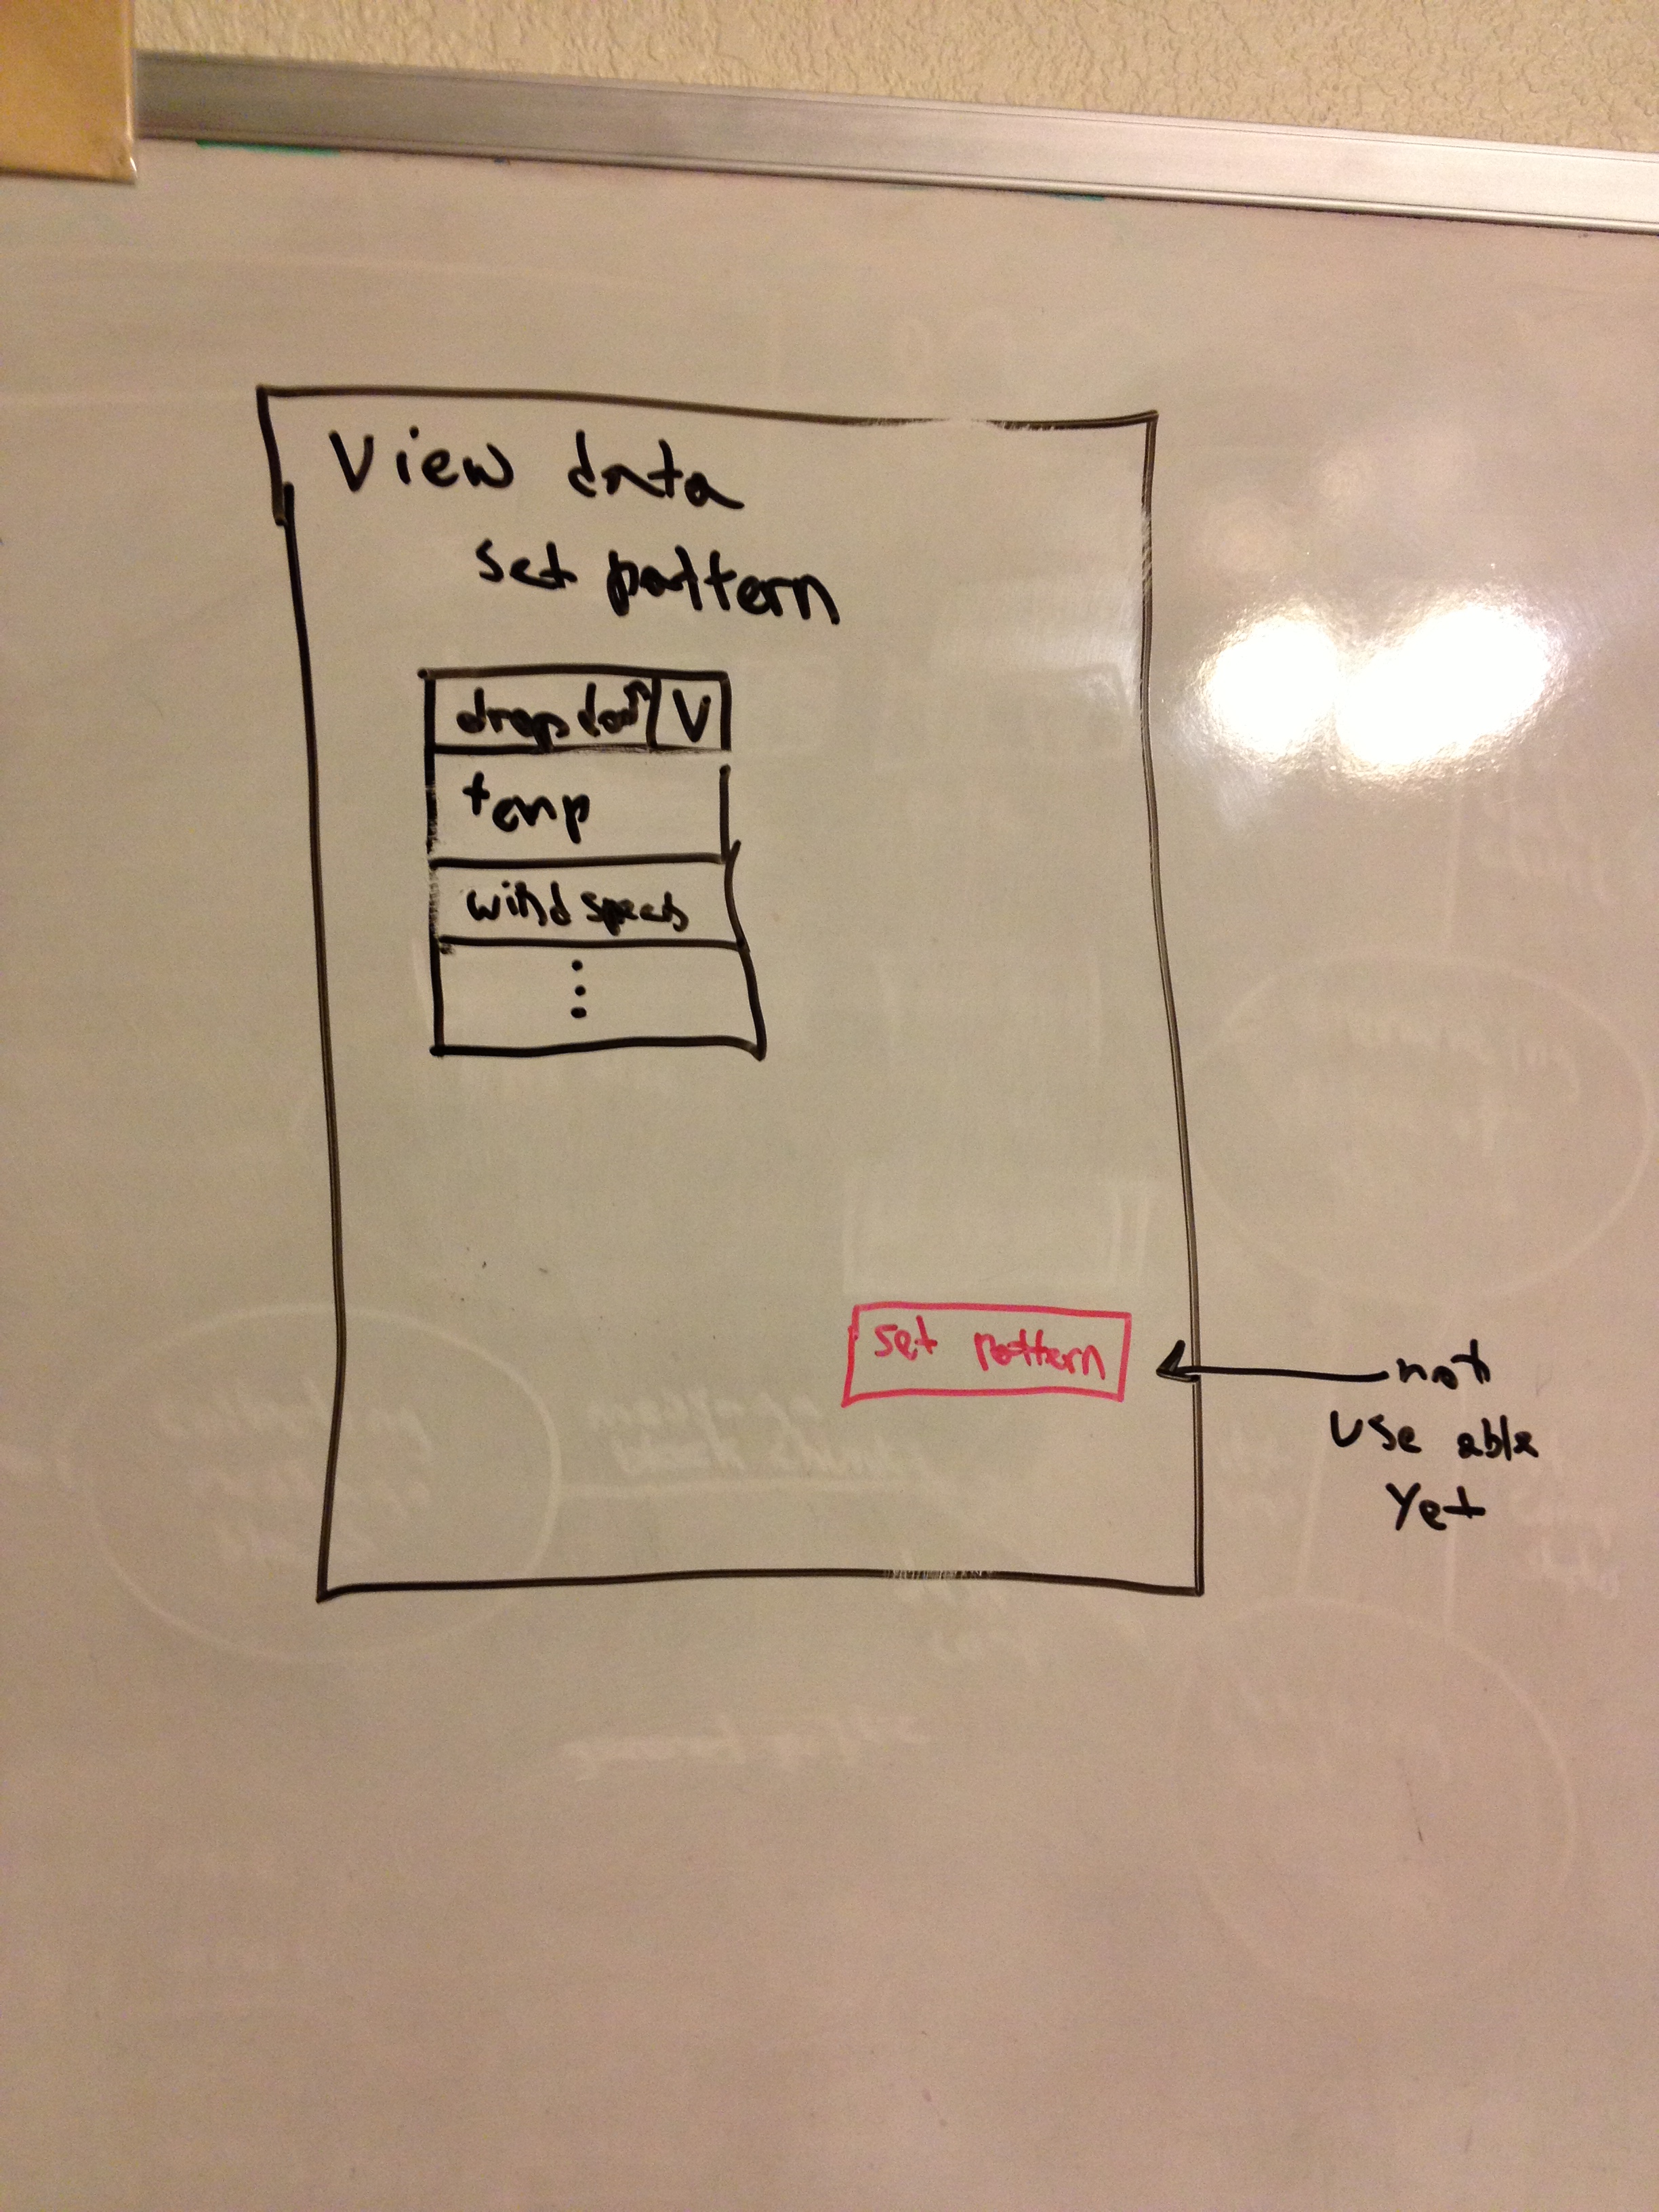 View data
set pattern
drop down V
temp
wind speeds
set pattern
not
use able
yet